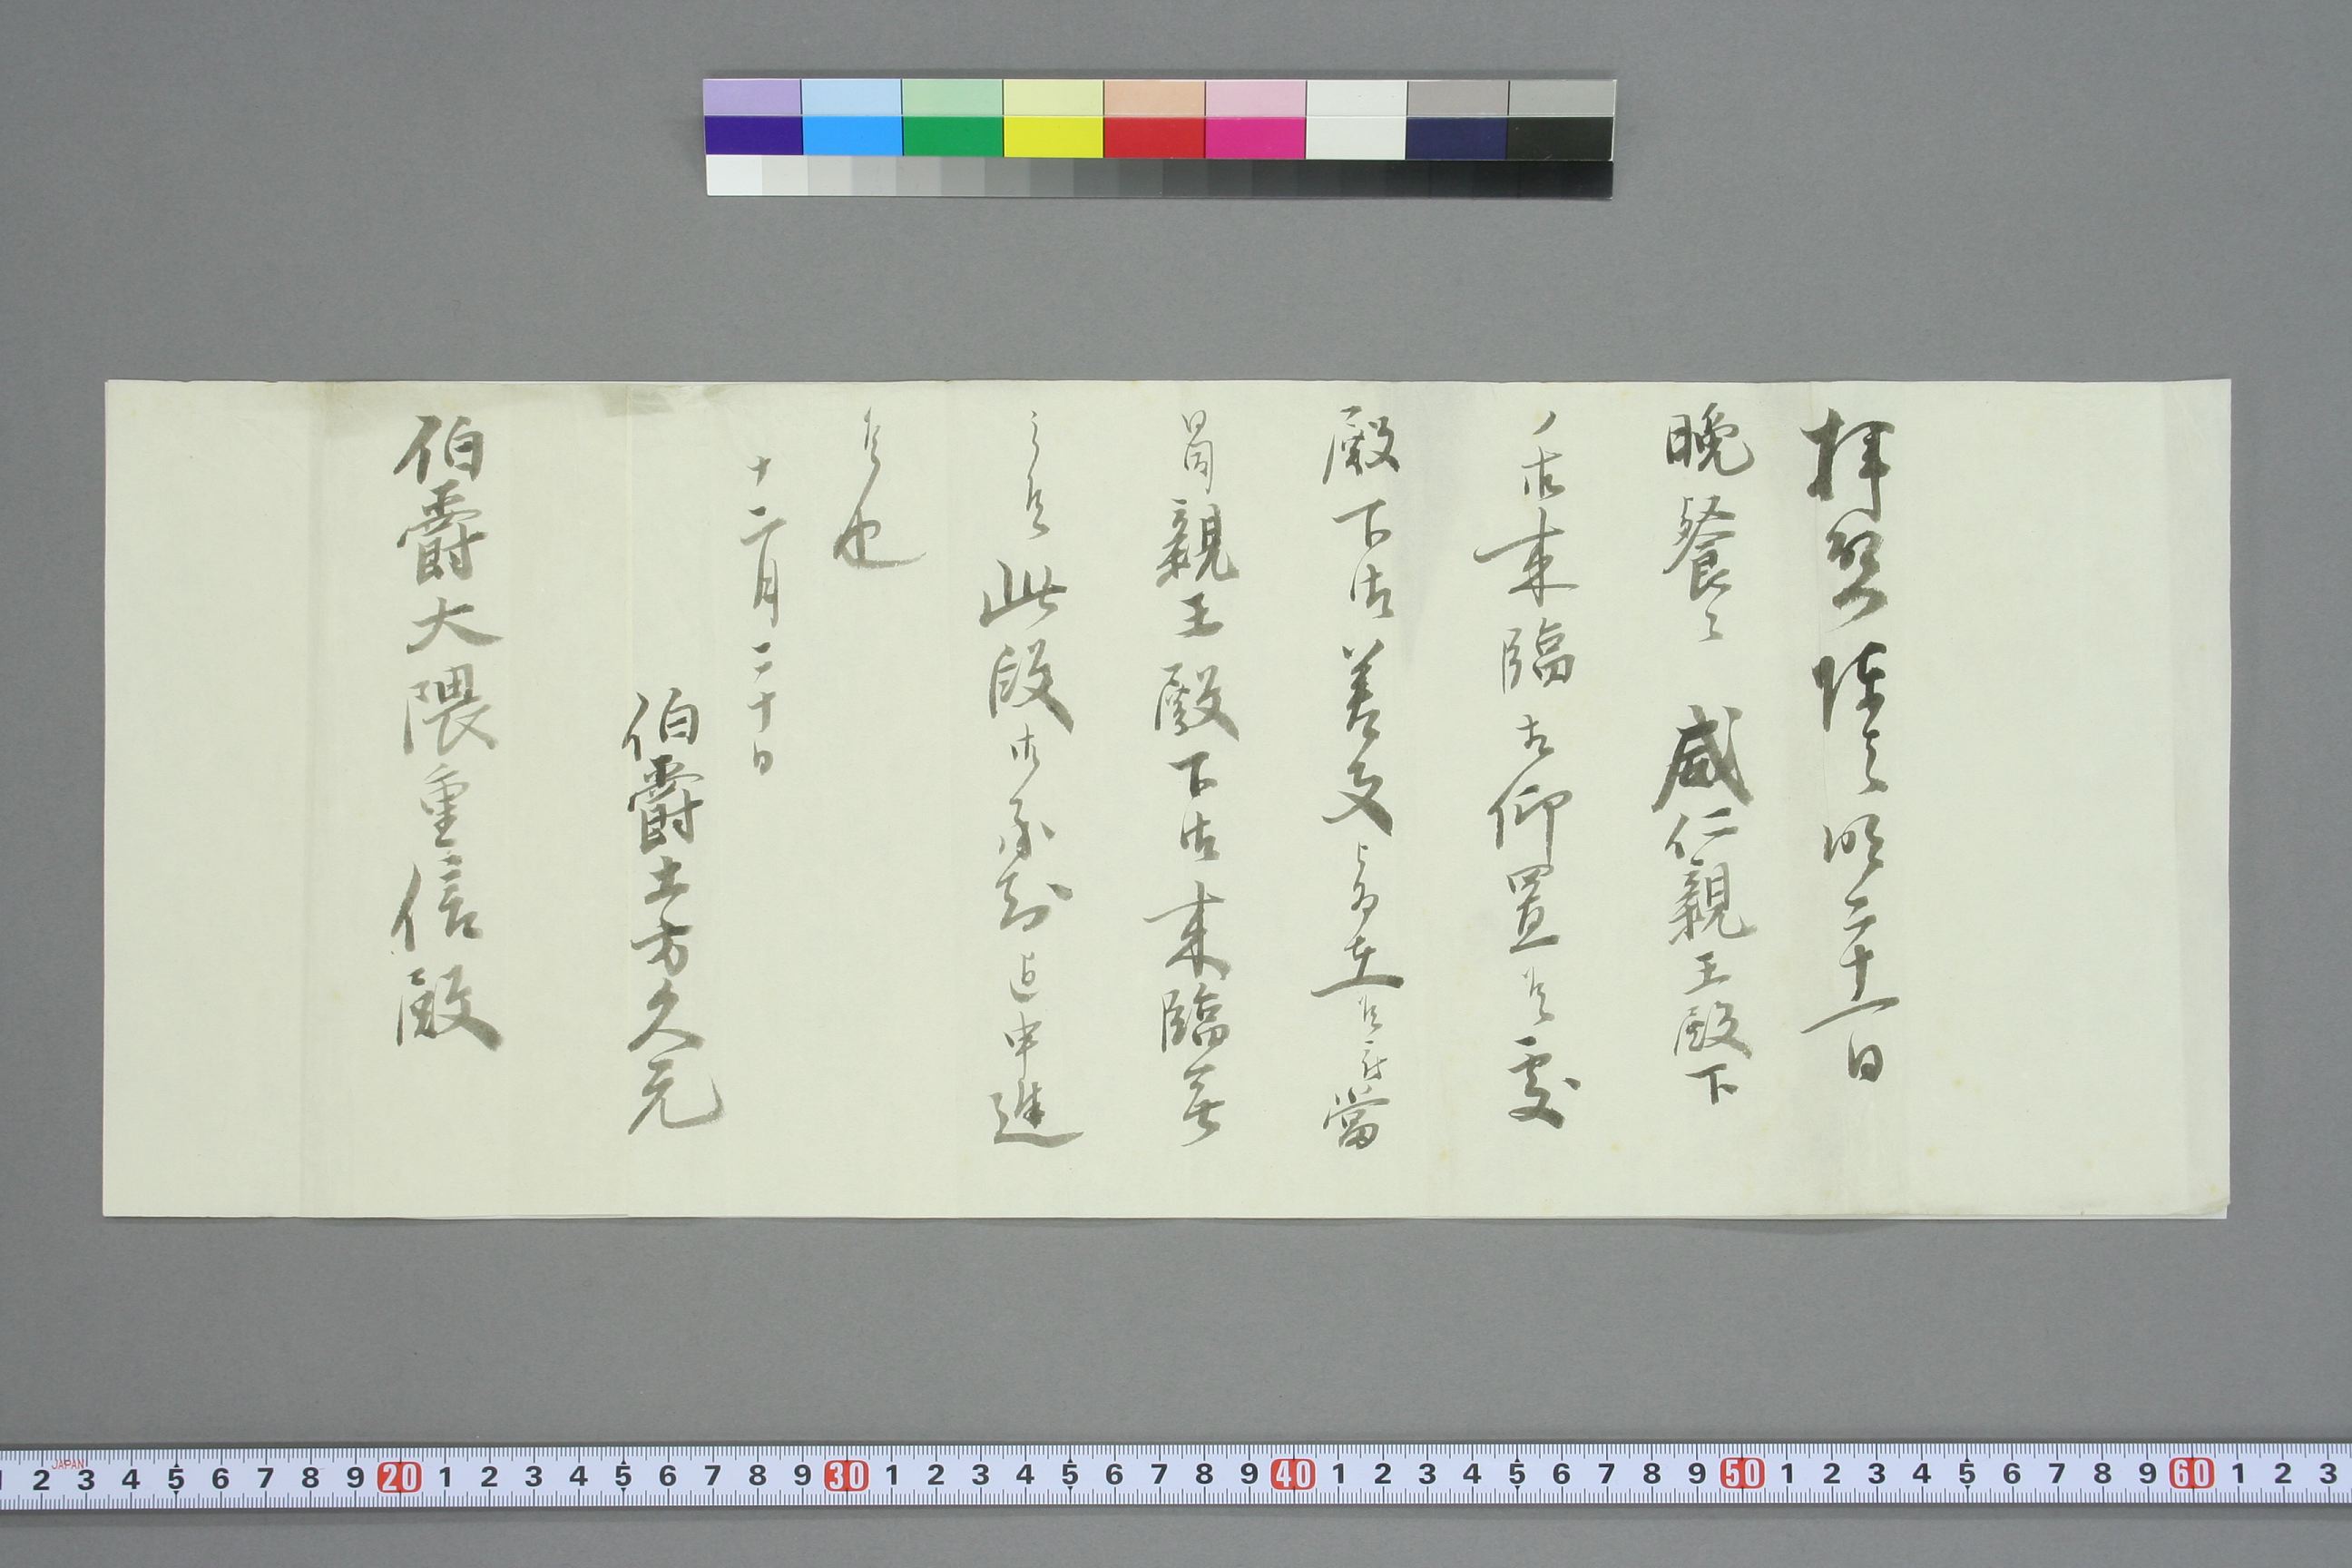 拝啓陳者明二十一日
晩餐之 威仁親王殿下
ノ御来臨仰置候處
殿下御差支被為在候當
日同親王殿下御来臨無
之候此段御承知迄申進
候也
十二月二十日
伯爵土方久元
伯爵大隈重信殿
1 2 3 4 5 6 7 8 9 20 1 2 3 4 5 6 7 8 9 30 1 2 3 4 5 6 7 8 9 40 1 2 3 4 5 6 7 8 9 50 1 2 3 4 5 6 7 8 9 60 1 2 3
JAPAN